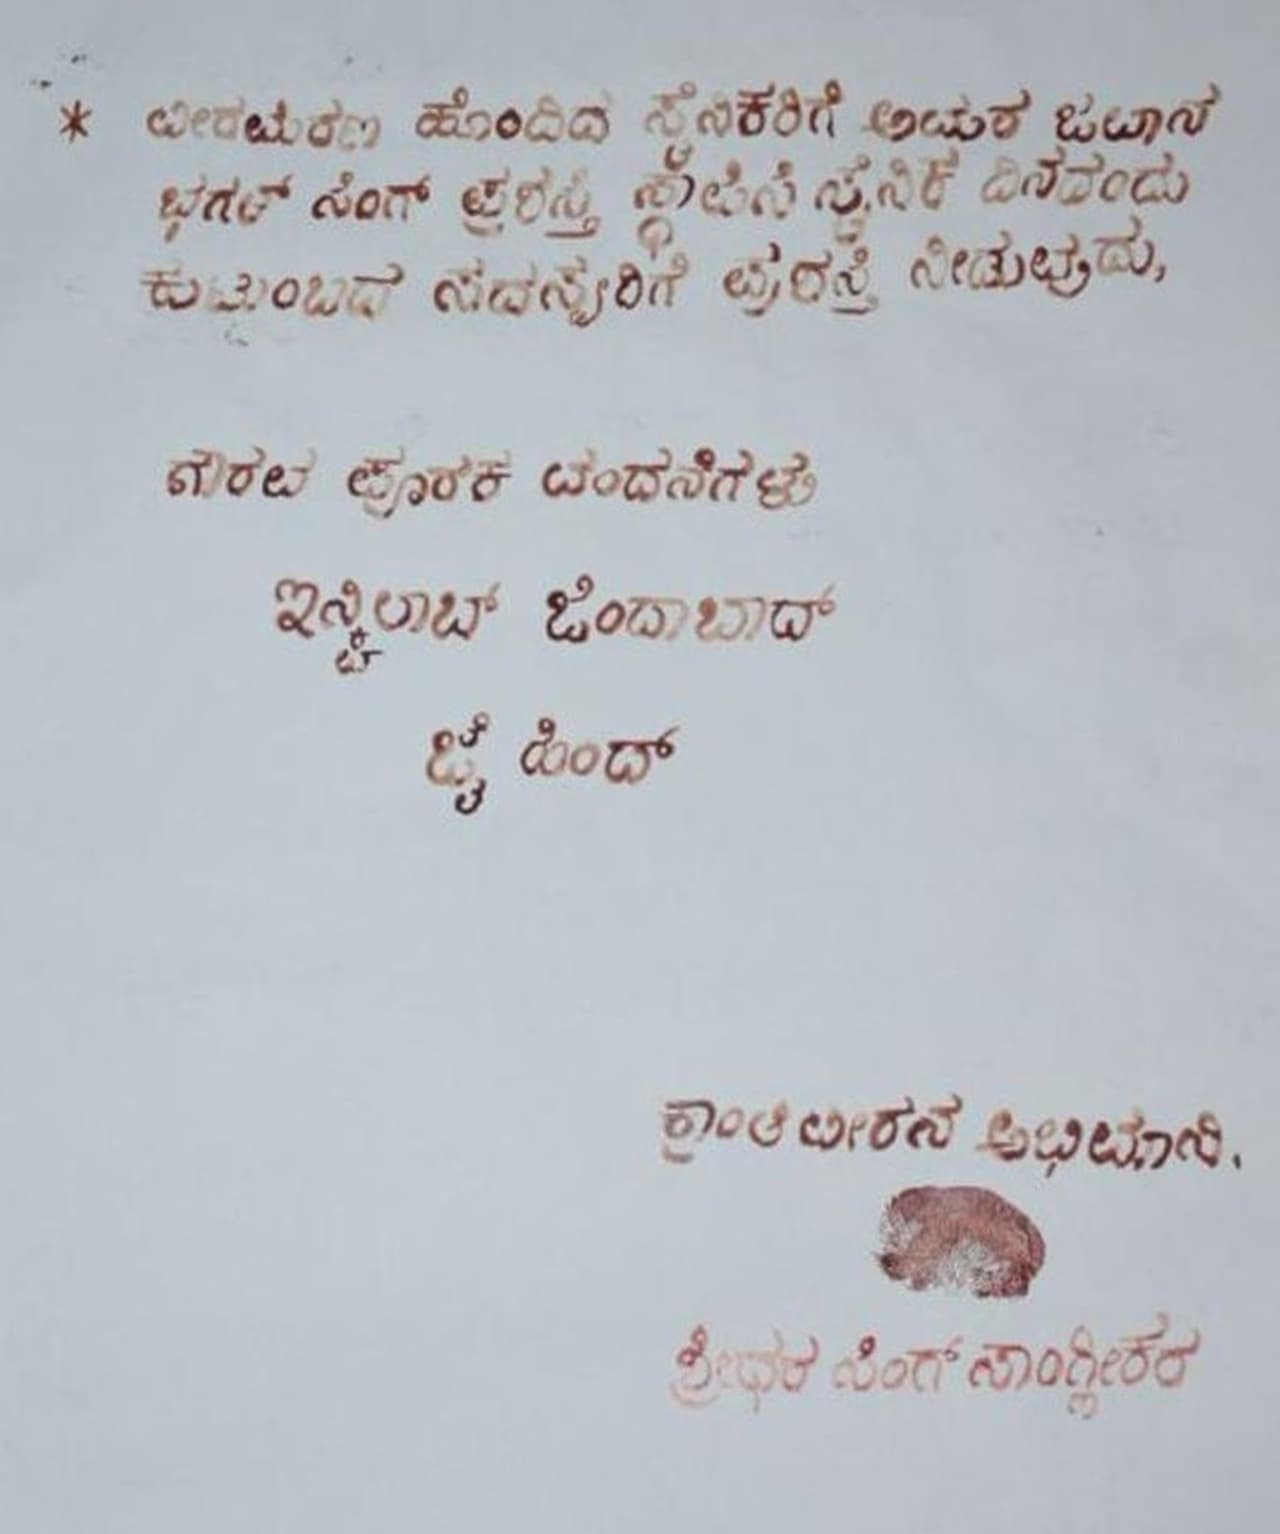 * ವೀರಮರಣ ಹೊಂದಿದ ಸೈನಿಕರಿಗೆ ಅಮರ ಜವಾನ
ಭಗತ್ ಸಿಂಗ್ ಪ್ರಶಸ್ತಿ ಸ್ಥಾಪಿಸಿ ಸೈನಿಕ ದಿನದಂದು
ಕುಟುಂಬದ ಸದಸ್ಯರಿಗೆ ಪ್ರಶಸ್ತಿ ನೀಡುವುದು,
ಗೌರವ ಪೂರಕ ವಂದನೆಗಳು
ಇನ್ಕ್ವಿಲಾಬ್ ಜಿಂದಾಬಾದ್
ಜೈ ಹಿಂದ್
ಕ್ರಾಂತಿ ವೀರನ ಅಭಿಮಾನಿ.
ಶ್ರೀಧರ ಸಿಂಗ್ ಸಾಂಗ್ಲೀಕರ